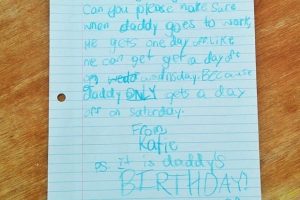 can you please make sure
when daddy goes to work
he gets one day off. Like
he can get get a day off
on wednesday. Because
daddy ONLY gets a day
off on saturday.
From
Katie
Ps. It is daddy's
BIRTHDAY!